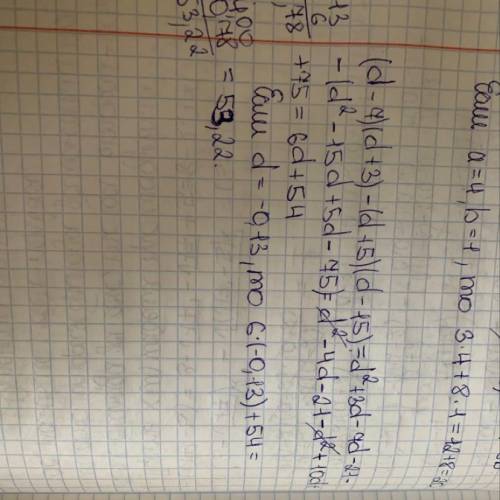 Если a=4, b=1, то 3·4+8·1=12+8=2
(d-7)(d+3)-(d+5)(d-15)=d²+3d-7d-21-
-(d²-15d+5d-75)=d²-4d-21-d²+10d+
+75=6d+54
Если d=-0,13, то 6·(-0,13)+54=
=53,22.
13
6
78
400
0,78
53,22